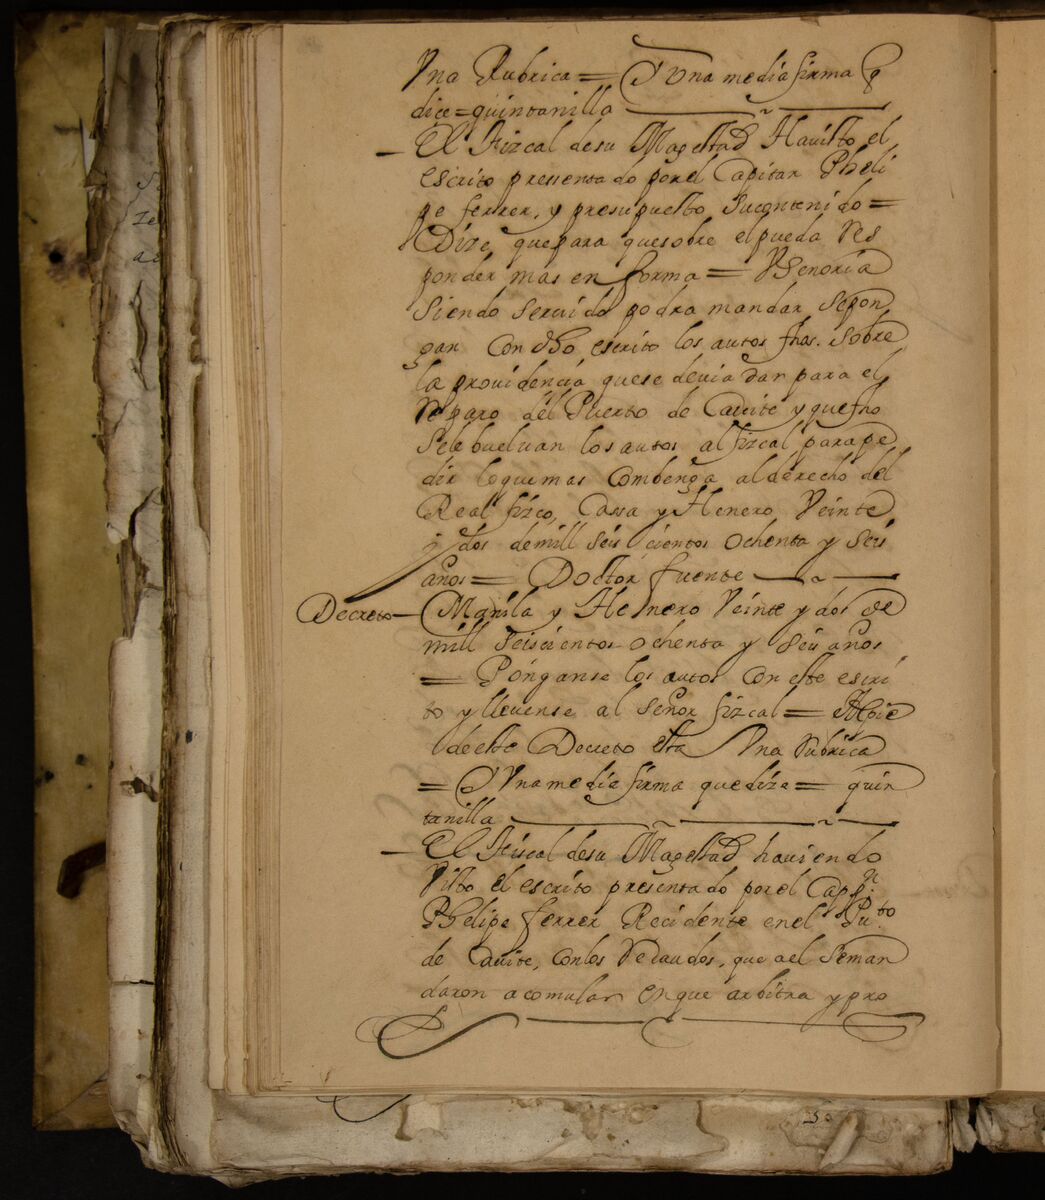 Vna Rubrica = Y Vna media firma q
dice = quintanilla
El Fizcal desu Magestad Havisto el
escrito pressentado porel Capitan Pheli
pe ferrer, y presupuesto sucontenido =
Dize, quepara quesobre elpueda Res
ponder mas en forma = VSenoria
Siendo servido podra mandar sepon
gan Con dho escrito los autos fhos. sobre
la providencia quese devia dar para el
Reparo del Puerto de Cavite y quefho
Sele buelvan los autos al fizcal parape
dir loquemas Combenga alderecho del
Real fizco, Cassa y Henero Veinte
y dos demill seis cientos ochenta y seis
años = Doctor fuente
Decreto Manila y Henero Veinte y dos de
mill seiscientos ochenta y seis años
= Pónganse los autos Con este escri
to y llevense al señor fizcal = Alpie
deeste Decreto esta Vna rubrica
= Y Vnamedia firma quedize = quin
tanilla
El Fiscal desu Magestad haviendo
Visto el escrito presentado porel Cappn.
Phelipe ferrer Recidente enel Puto.
de Cavite, conlos Recaudos, que ael seman
daron acomular enque arbitra y pro